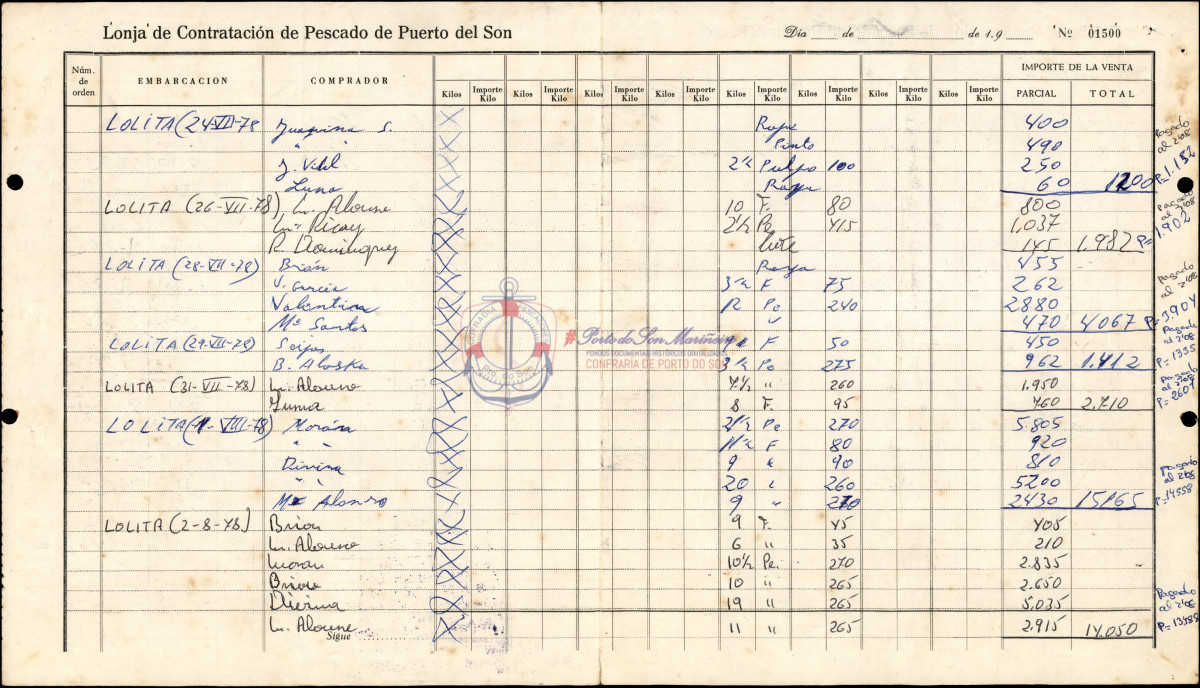 Lonja de Contratación de Pescado de Puerto del Son Día de de 19 Nº 01500
Núm. de orden EMBARCACION COMPRADOR Kilos Importe Kilo Kilos Importe Kilo Kilos Importe Kilo Kilos Importe Kilo Kilos Importe Kilo Kilos Importe Kilo Kilos Importe Kilo Kilos Importe Kilo IMPORTE DE LA VENTA PARCIAL TOTAL
LOLITA (24-VII-78 Juaquina S. Rape 400
" " Pinto 490
J. Vidal 2½ Pulpo 100 250
Luna Raya 60 1200
pagado al 2'08 P=1.152
LOLITA (26-VII-78) 10 F. 80 800
2½ Pe 415 1,037
R. Dominguez 145 1.982
pagado al 2'08 P=1.902
LOLITA (28-VII-78) Brión Raya 455
J. García 3½ F 75 262
Valentina 12 Pe 240 2880
Mª Santos " 470 4067
pagado al 2'08 P=3.904
LOLITA (29-VII-78) Seijas F 50 450
B. Aloska 3½ Pe 275 962 1.412
Pagado al 2'08 P=1355
LOLITA (31-VII-78) 7½ " 260 1.950
8 F. 95 760 2.710
pagado al 2'08 P=2607
LOLITA (1-VIII-78) Morán 21½ Pe 270 5.805
" " 11½ F 80 920
Divina 9 " 90 810
" " 20 " 260 5200
Mª Alonso 9 " 270 2430 15165
pagado al 2'08 P=14558
LOLITA (2-8-78) Brion 9 F. 45 405
6 " 35 210
Moran 10½ Pe. 270 2.835
Brion 10 " 265 2.650
19 " 265 5,035
11 " 265 2.915 14.050
Sigue
Pagado al 2'08 P=13488
COFRADIA PESCADORES
Pto. do Son
#Porto do Son Mariñeiro
FONDOS DOCUMENTAIS HISTÓRICOS DIGITALIZADOS
CONFRARÍA DE PORTO DO SON